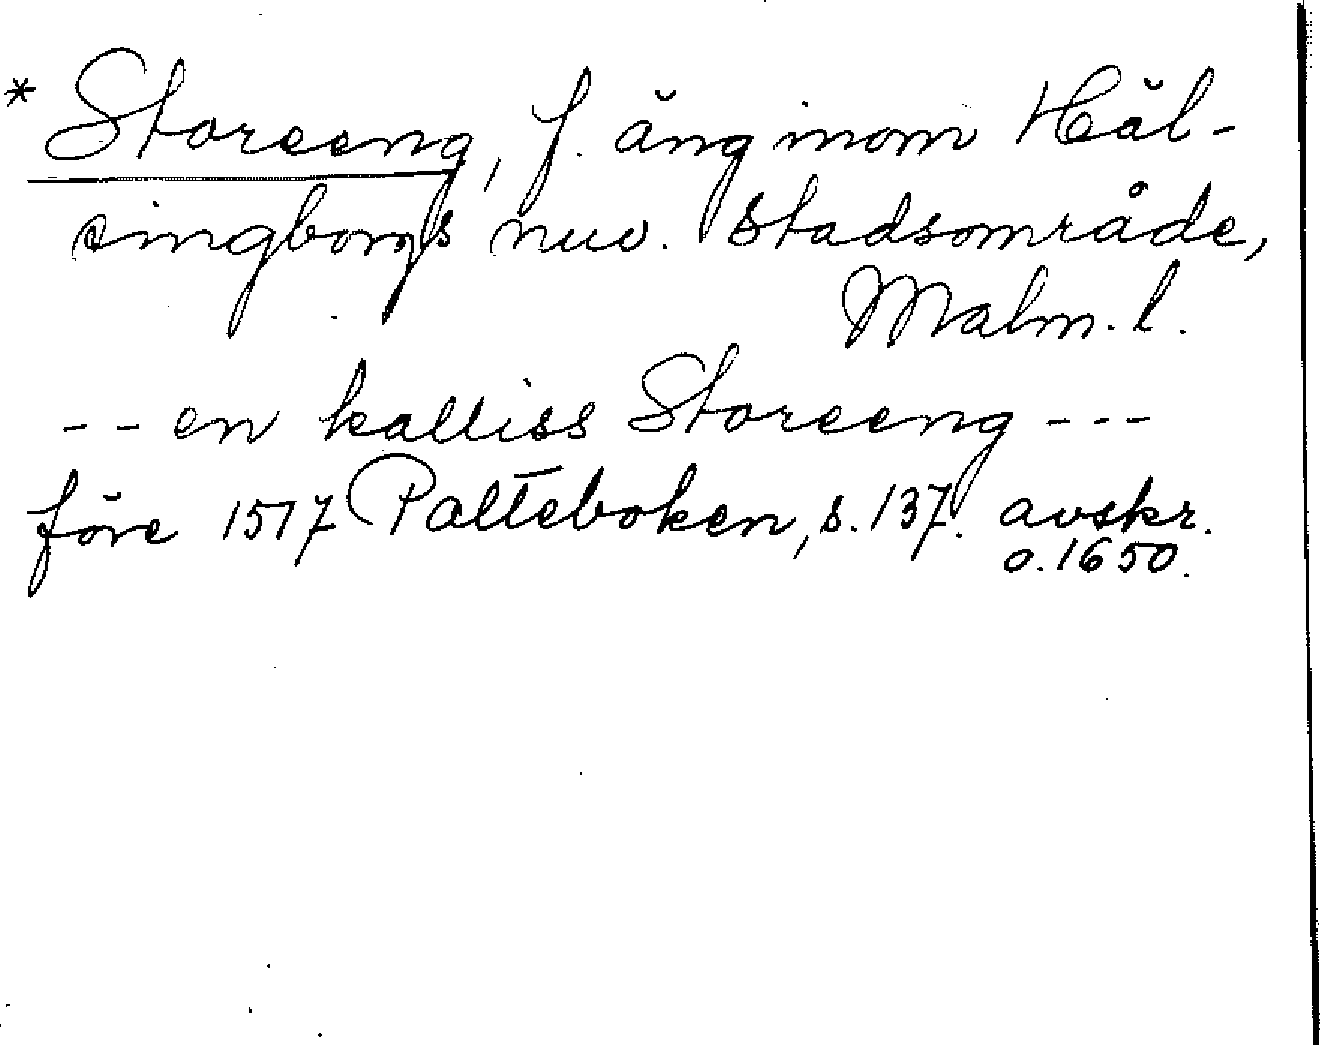 * Storeeng, f. äng inom Häl-
singborgs nuv. stadsområde,
Malm. l.
-- en kalliss Storeeng ---
före 1517 Palteboken, s. 137. avskr.
o. 1650.